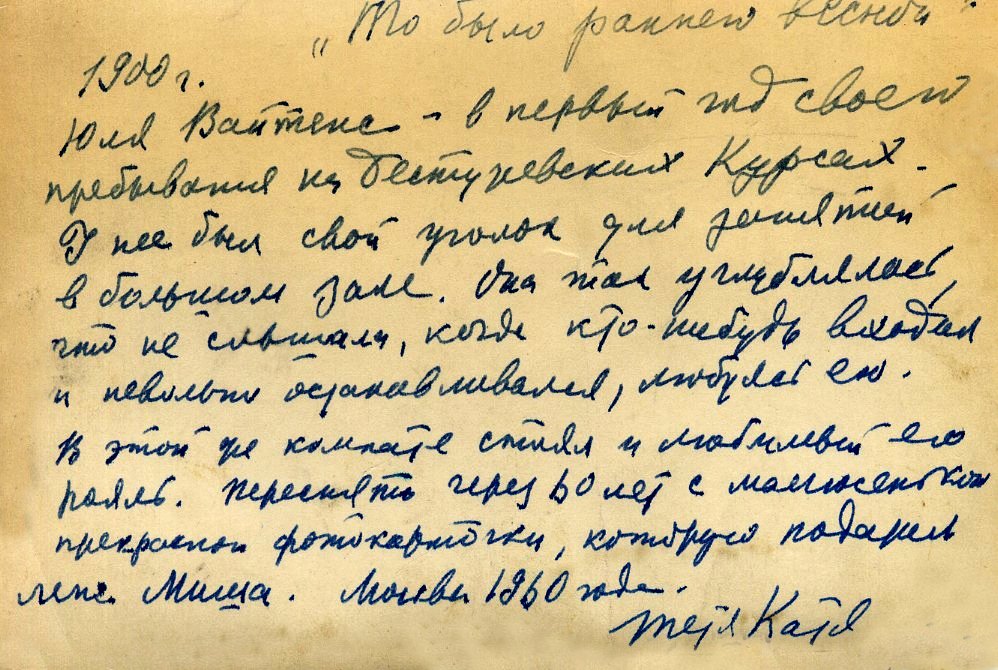 „То было раннею весной"
1900 г.
Юля Вайтенс – в первый год своего
пребывания на Бестужевских Курсах.
У нее был свой уголок для занятий
в большом зале. Она так углублялась,
что не слышала, когда кто-нибудь входил
и невольно останавливался, любуясь ею.
В этой же комнате стоял и любимый ею
рояль. Переснять через 60 лет с малюсенькой
прекрасной фотокарточки, которую подарил
мне Миша. Москва 1960 года.
тетя Катя